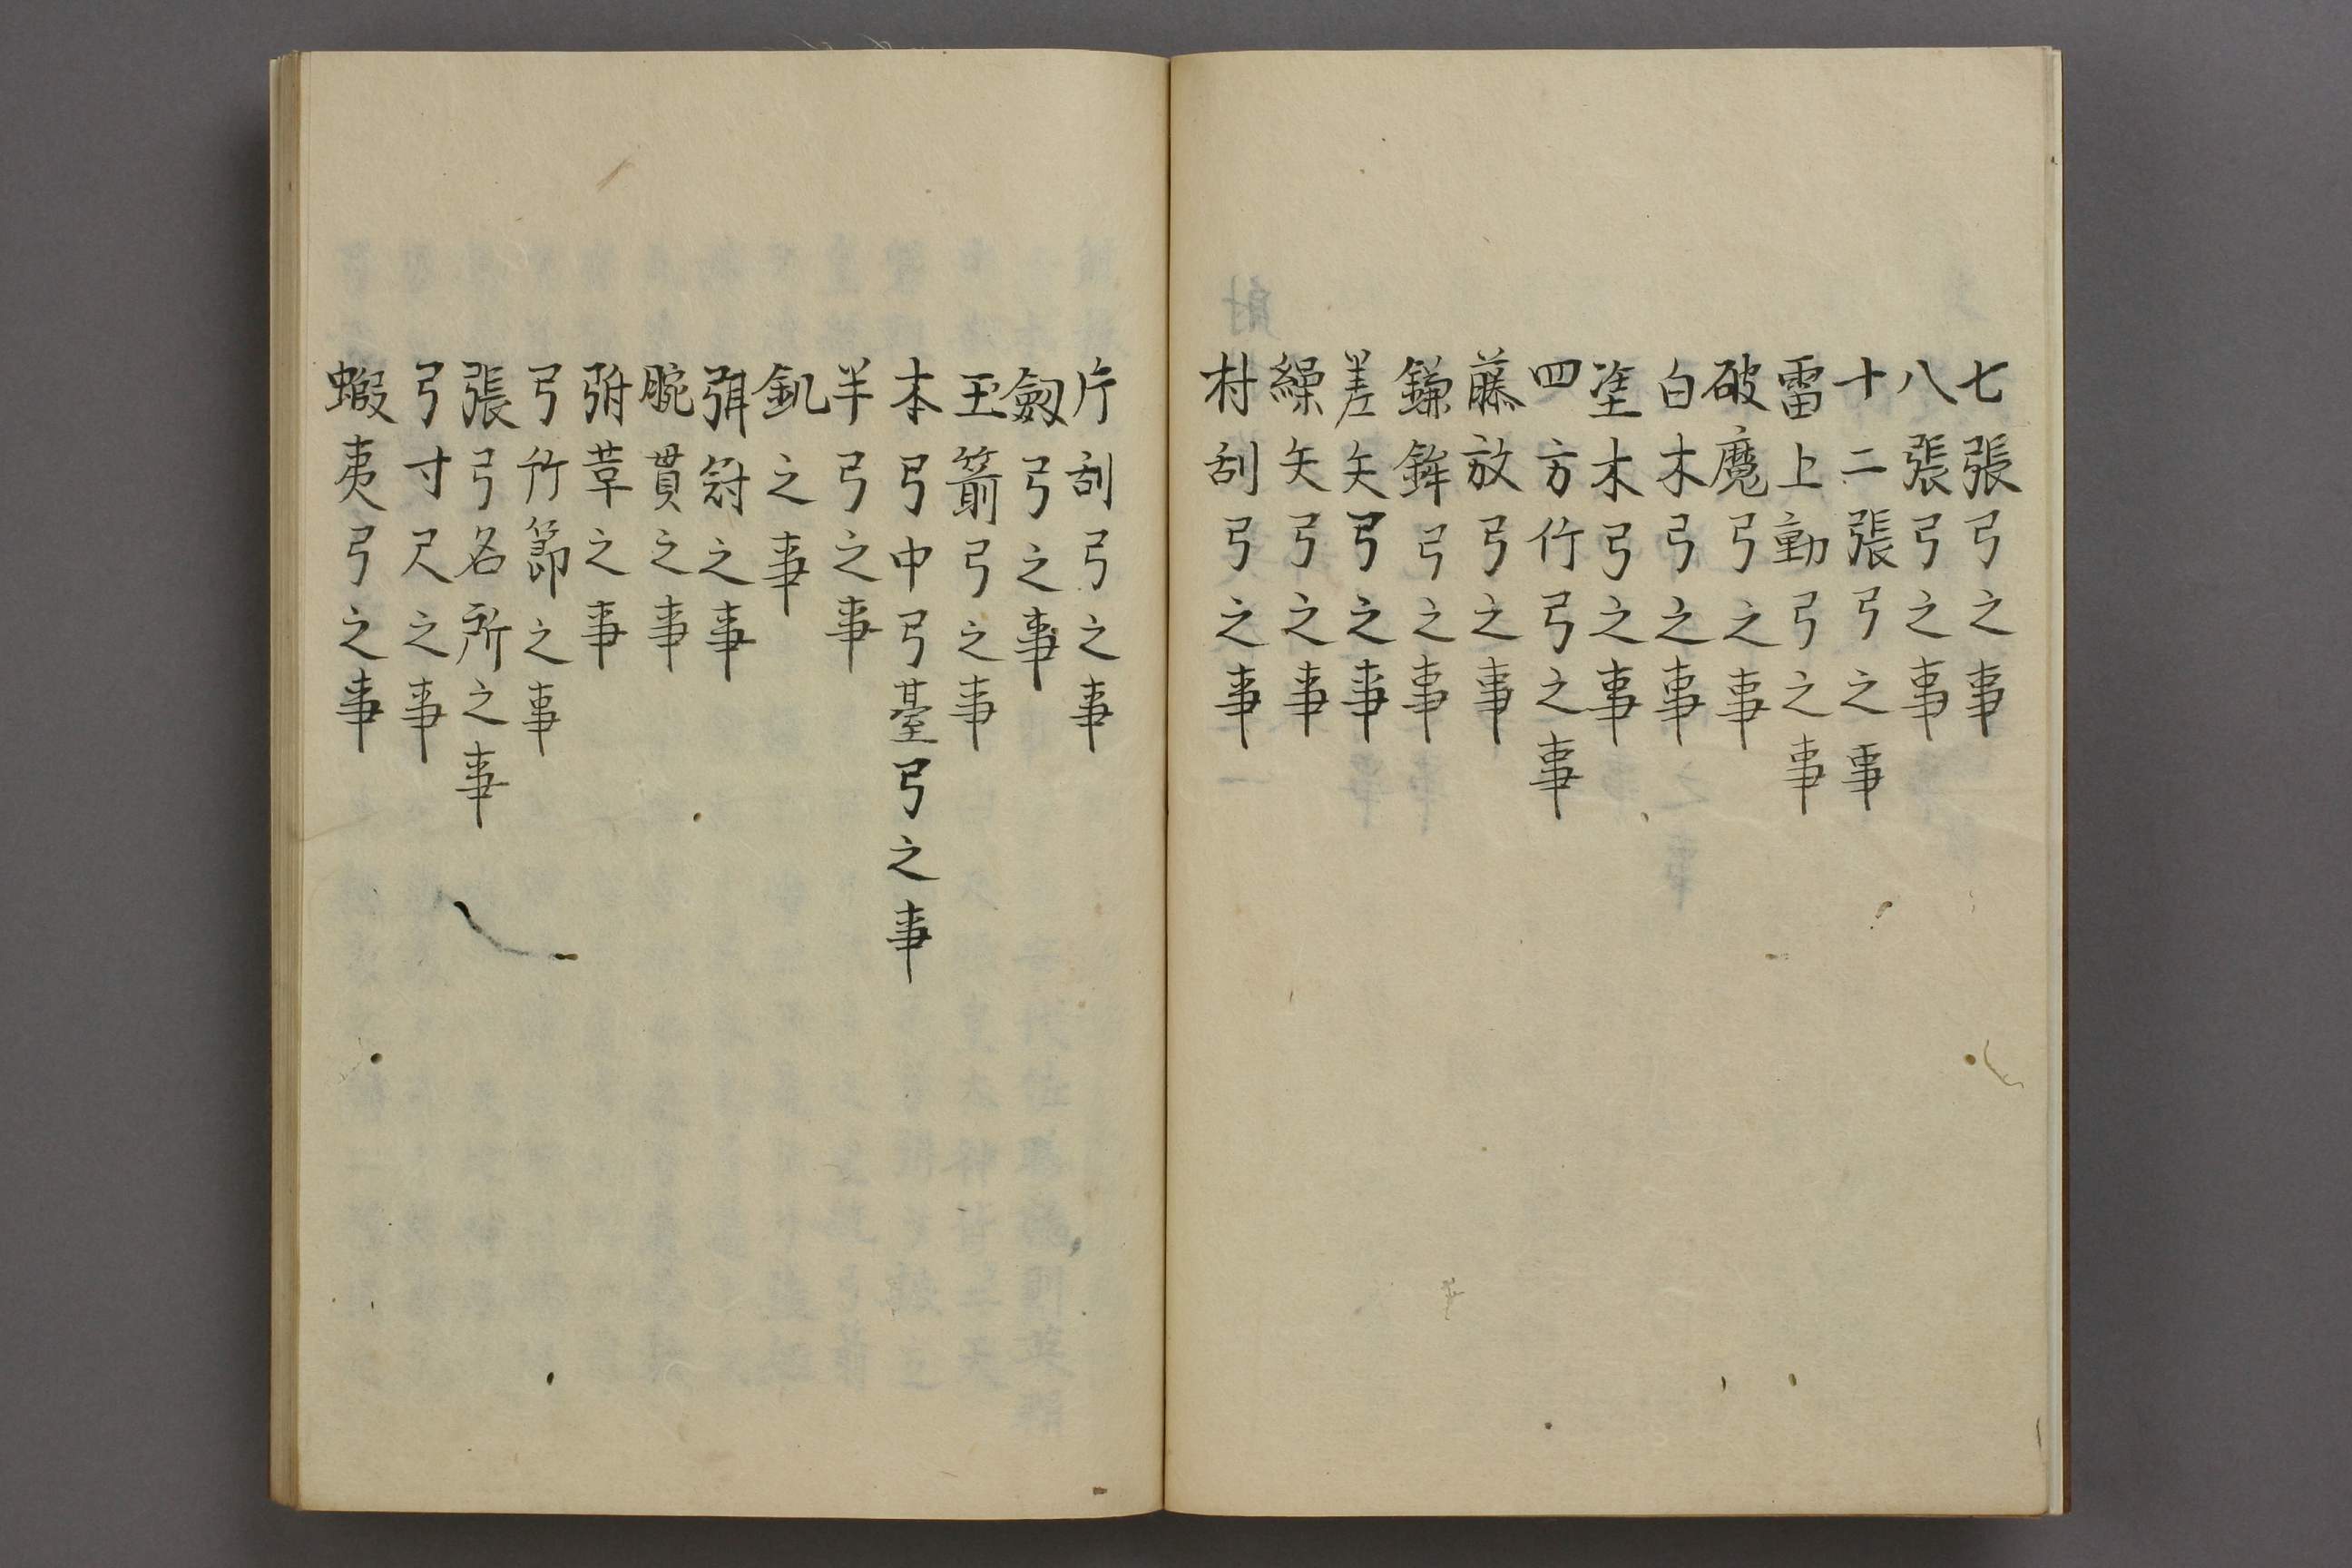 七張弓之事
八張弓之事
十二張弓之事
雷上動弓之事
破魔弓之事
白木弓之事
塗木弓之事
四方竹弓之事
藤放弓之事
鎌鉾弓之事
差矢弓之事
繰矢弓之事
村刮弓之事
片刮弓之事
劔弓之事
玉箭弓之事
本弓中弓䑓弓之事
半弓之事
釟之事
弭冠之事
腕貫之事
弣革之事
弓竹節之事
張弓名所之事
弓寸尺之事
蝦夷弓之事